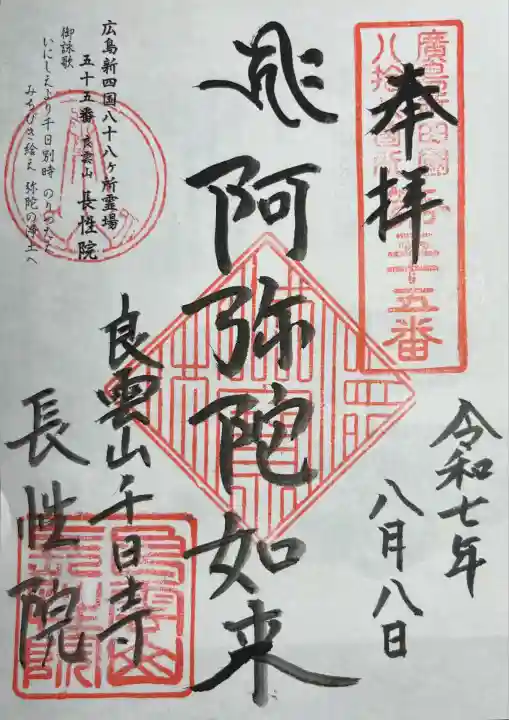 奉拝
廣島新四國
八拾八箇所第五十五番
令和七年
八月八日
阿弥陀如来
良雲山千日寺
長性院
広島新四国八十八ヶ所霊場
五十五番 良雲山 長性院
御詠歌
いにしえより千日別時 のりつたえ
みちびき給え 弥陀の浄土へ